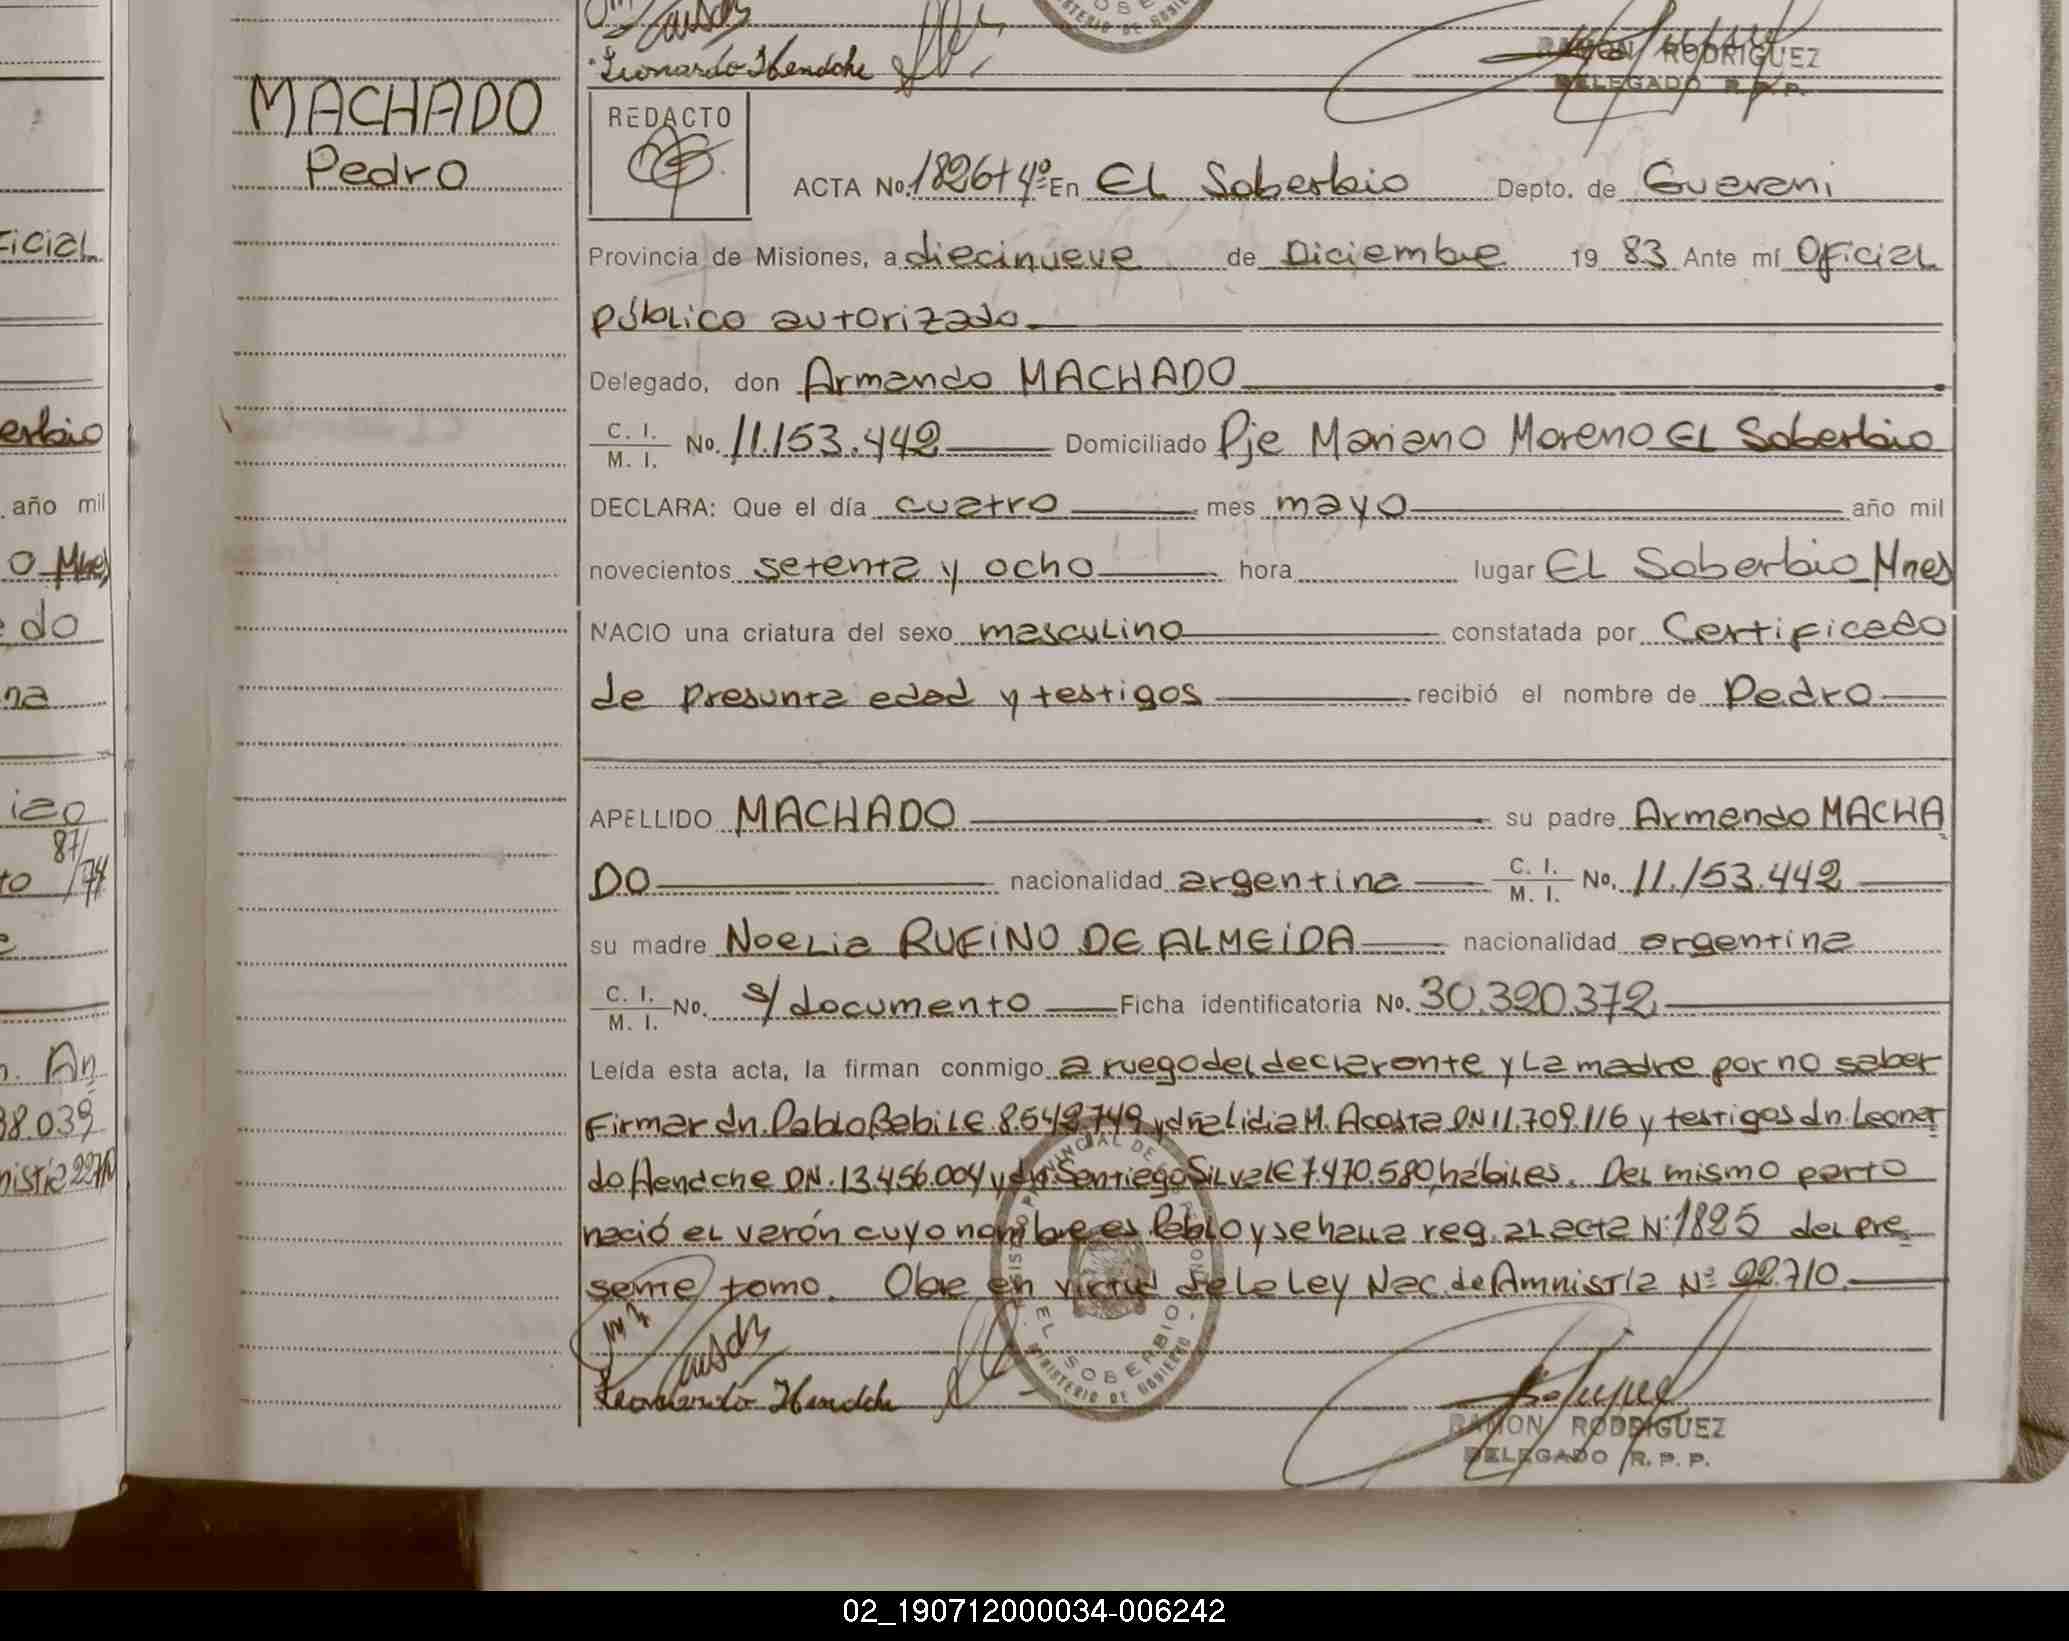 Leonardo Hendche
RAMON RODRIGUEZ
DELEGADO R. P. P.
MACHADO
Pedro
REDACTO
ACTA No. 1826 t 4º En EL Soberbio Depto. de Guarani
Provincia de Misiones, a diecinueve de Diciembre 19 83 Ante mí Oficial
público autorizado
Delegado, don Armando MACHADO
C. I. M. I. No. 11.153.442 Domiciliado Pje Mariano Moreno EL Soberbio
DECLARA: Que el día cuatro mes mayo año mil
novecientos setenta y ocho hora lugar EL Soberbio Mnes
NACIO una criatura del sexo masculino constatada por Certificado
de presunta edad y testigos recibió el nombre de Pedro
APELLIDO MACHADO su padre Armando MACHA
DO nacionalidad argentina C. I. M. I. No. 11.153.442
su madre Noelia RUFINO DE ALMEIDA nacionalidad argentina
C. I. M. I. No. s/documento Ficha identificatoria No. 30.320.372
Leída esta acta, la firman conmigo a ruego del declarante y la madre por no saber
firmar dn. Pablo Babi LE 8.549.749 y dña Lidia M. Acosta DNI 11.709.116 y testigos dn. Leonar
do Hendche DN. 13.456.004 y dn Santiago Silva LE 7.470.580, hábiles. Del mismo parto
nació el varón cuyo nombre es Pablo y se halla reg. al acta Nº 1825 del pre
sente tomo. Obre en virtud de la Ley Nac. de Amnistía Nº 22.710.
Leonardo Hendche
EL SOBERBIO
MINISTERIO DE GOBIERNO
RAMON RODRIGUEZ
DELEGADO R. P. P.
ficial
erbio
año mil
o Mnes
do
na
izo
87/
to /74
n. An
38.039
nistía 22710
02_190712000034-006242